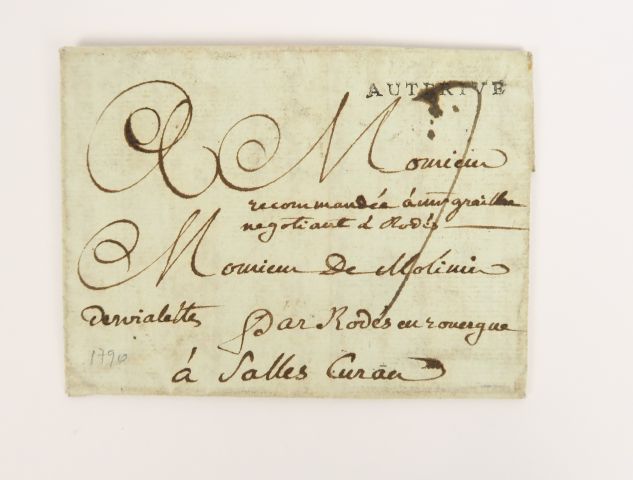 AUTERIVE
A Monsieur
recommandée à mr grailhe
negotiant à Rodés
Monsieur De Molinier
Desvialettes par Rodés en rouergue
1790
à Salles Curan